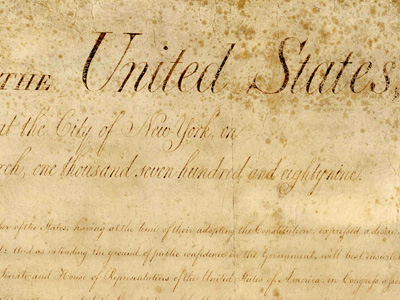 THE United States,
at the City of New York, on
rch, one thousand seven hundred and eighty nine.
of the States, having at the time of their adopting the Constitution, expressed a desire
And as extending the ground of public confidence in the Government, will best insure
Senate and House of Representatives of the United States of America, in Congress